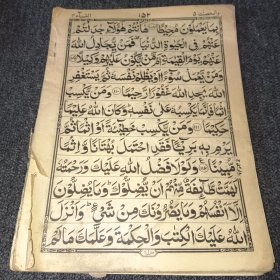 والمحصنت ٥ ١٥٢ النساء ٤
بِمَا يَعْمَلُونَ مُحِيْطًا ﴿١٠٨﴾ هٰٓاَنْتُمْ هٰٓؤُلَآءِ جٰدَلْتُمْ
عَنْهُمْ فِي الْحَيٰوةِ الدُّنْيَا فَمَنْ يُّجَادِلُ اللّٰهَ
عَنْهُمْ يَوْمَ الْقِيٰمَةِ اَمْ مَّنْ يَّكُوْنُ عَلَيْهِمْ وَكِيْلًا ﴿١٠٩﴾
وَمَنْ يَّعْمَلْ سُوْٓءًا اَوْ يَظْلِمْ نَفْسَهٗ ثُمَّ يَسْتَغْفِرِ
اللّٰهَ يَجِدِ اللّٰهَ غَفُوْرًا رَّحِيْمًا ﴿١١٠﴾ وَمَنْ يَّكْسِبْ
اِثْمًا فَاِنَّمَا يَكْسِبُهٗ عَلٰى نَفْسِهٖ وَكَانَ اللّٰهُ عَلِيْمًا
حَكِيْمًا ﴿١١١﴾ وَمَنْ يَّكْسِبْ خَطِيْٓئَةً اَوْ اِثْمًا ثُمَّ
يَرْمِ بِهٖ بَرِيْٓئًا فَقَدِ احْتَمَلَ بُهْتَانًا وَّاِثْمًا
مُّبِيْنًا ﴿١١٢﴾ وَلَوْلَا فَضْلُ اللّٰهِ عَلَيْكَ وَرَحْمَتُهٗ
لَهَمَّتْ طَّآئِفَةٌ مِّنْهُمْ اَنْ يُّضِلُّوْكَ وَمَا يُضِلُّوْنَ
اِلَّآ اَنْفُسَهُمْ وَمَا يَضُرُّوْنَكَ مِنْ شَيْءٍ وَاَنْزَلَ
اللّٰهُ عَلَيْكَ الْكِتٰبَ وَالْحِكْمَةَ وَعَلَّمَكَ مَا لَمْ